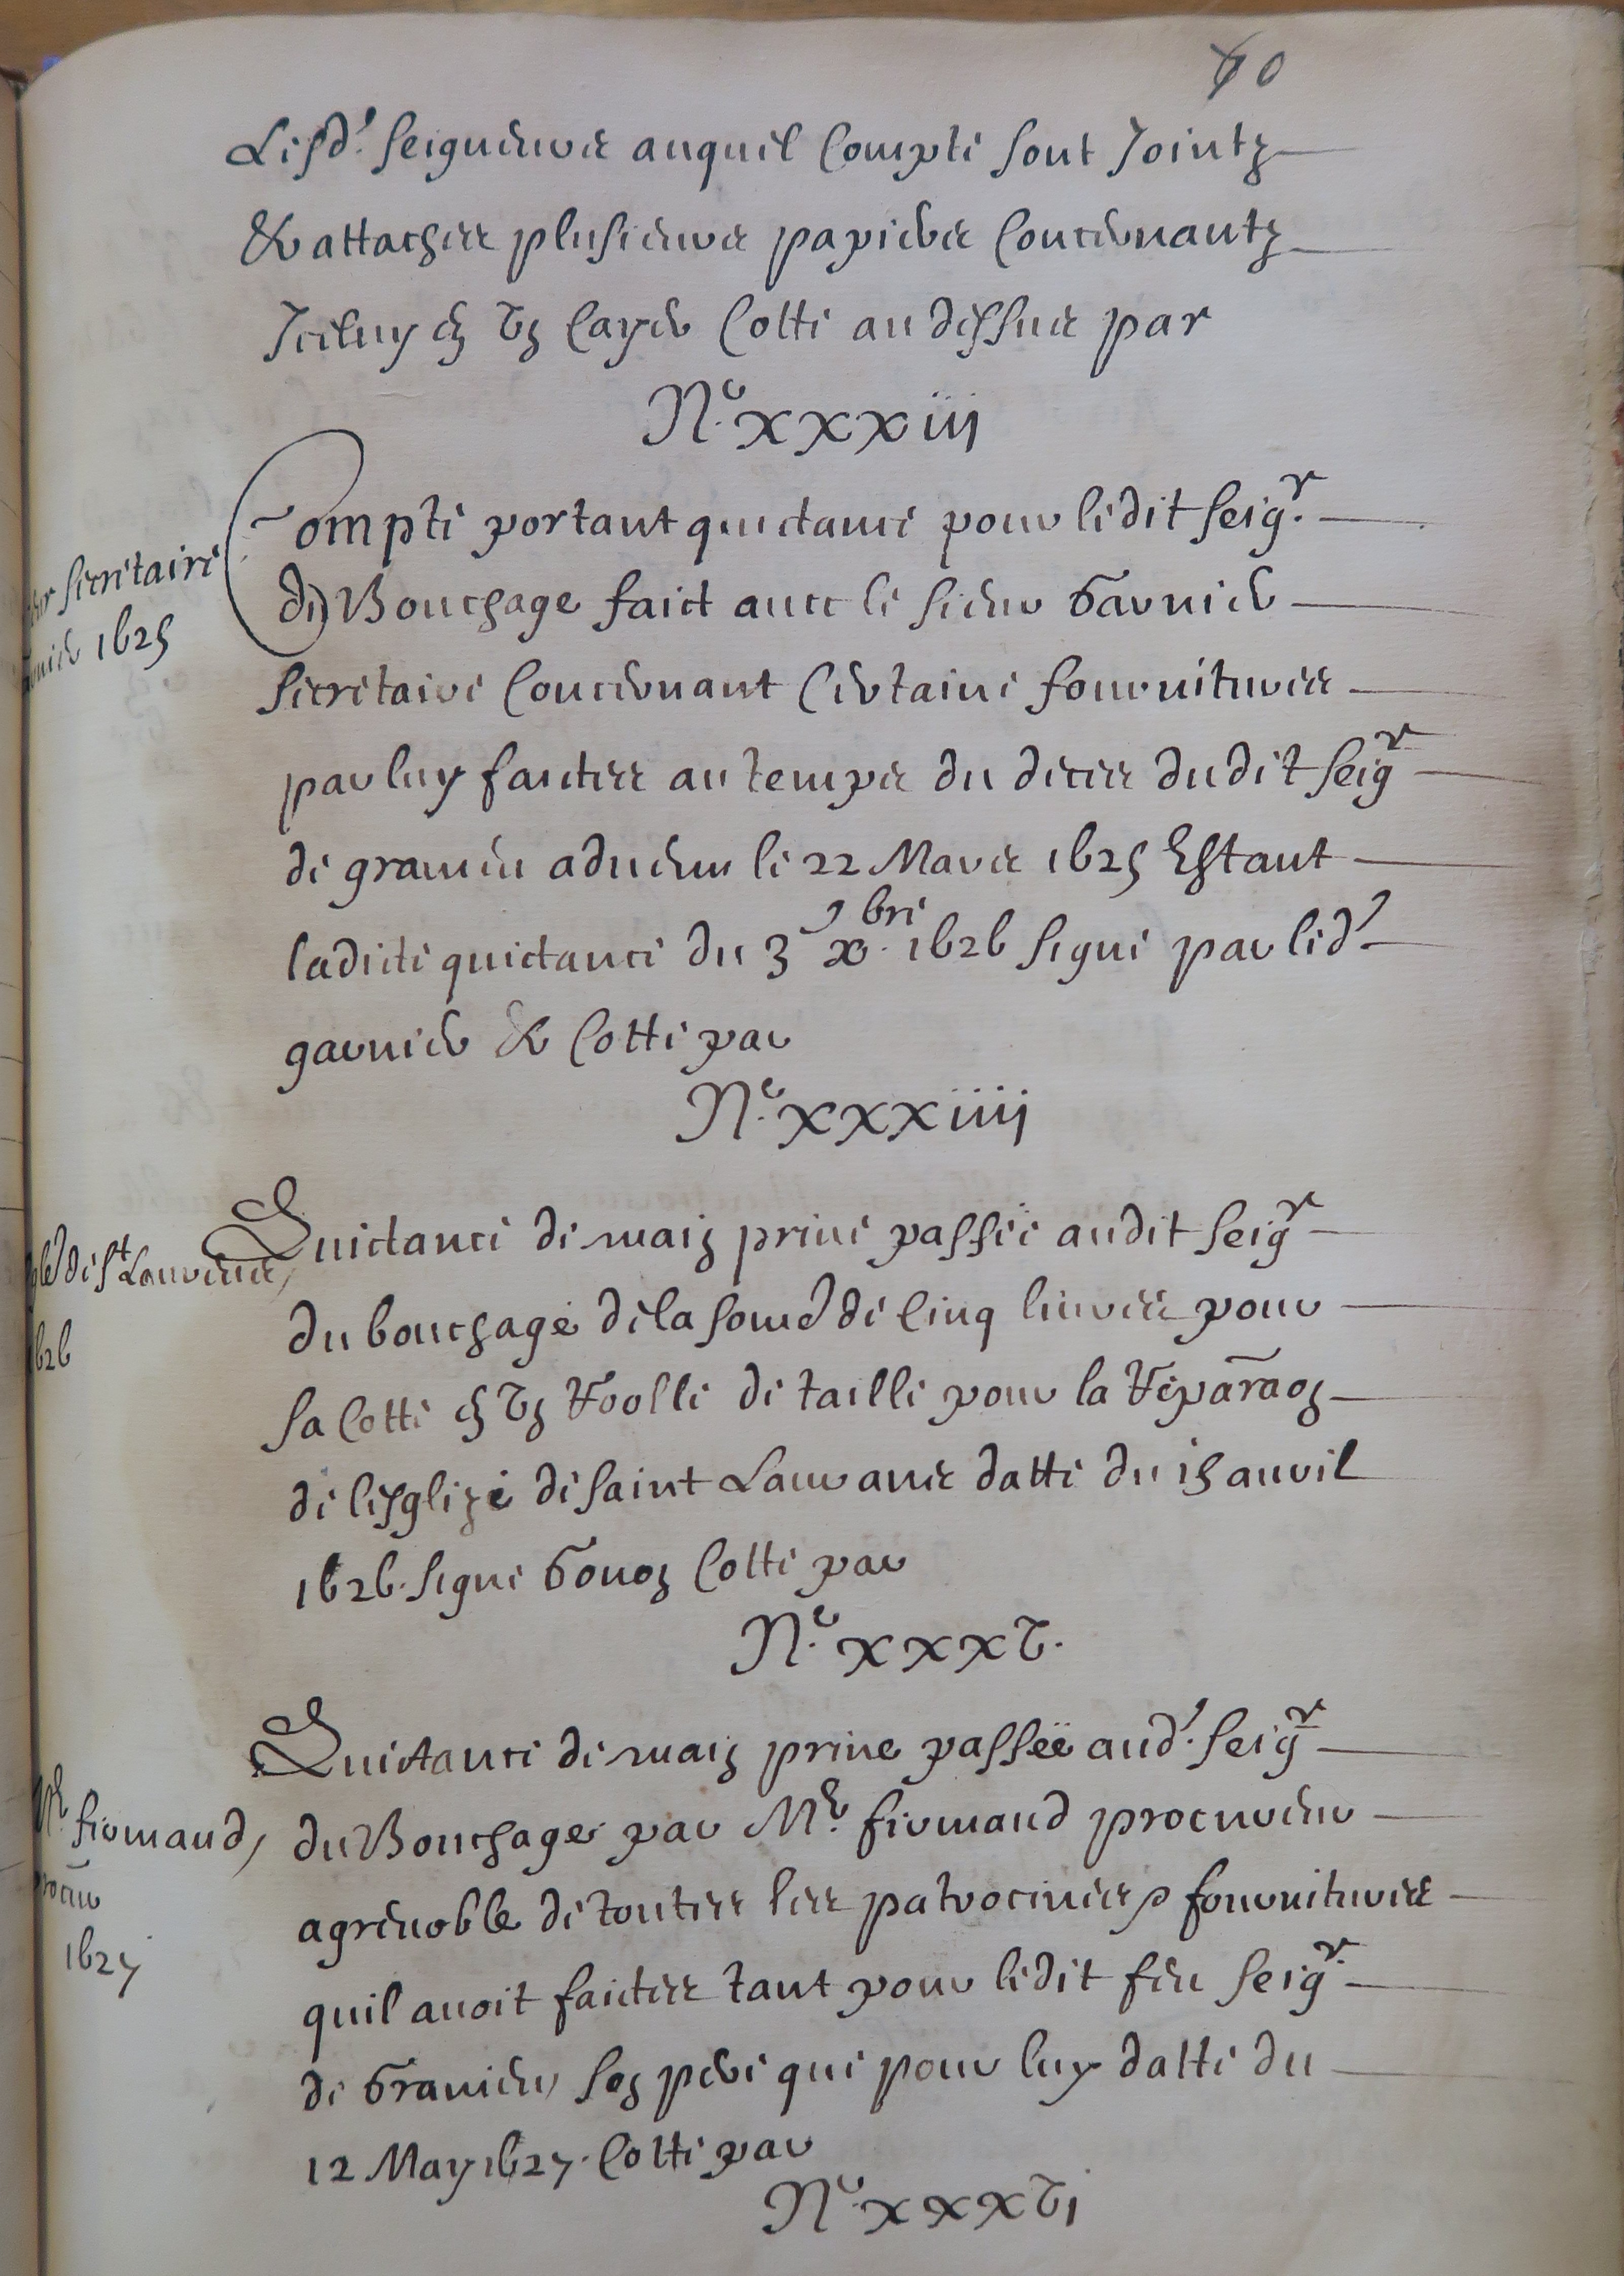 60
Lesd. Seigneurs auquel Compte sont Jointz
& attaches plusieurs papiers Concernantz
Iceluy en un Cayer Cotté au dessus par
N.e xxxiij
Compte portant quictance pour ledit Seig.r
du Bouchage faict auec le sieur Garnier
secretaire Concernant Certaine fournitures
par luy faictes au temps du deces dudit Seigr
de granieu aduenu le 22 Mars 1625 Estant
ladicte quictance du 3e xbre 1626 signe par led.
garnier & Cotté par
N.e xxxiiij
secretaire
1625
Quictance de main priue passée audit Seigr
du bouchage de la some de Cinq liures pour
sa Cotte en un Roolle de taille pour la Reparaon
de lesglize de saint Laurans datté du 15 auril
1626. signe Gonon Cotté par
N.e xxxv.
de st Laurens
1626
Quictance de main priue passëe aud. Seigr
du Bouchage par Mr. firmand procureur
agrenoble de toutes les patrocines & fournitures
quil auoit faictes tant pour ledit feu Seigr.
de Granieu son pere que pour luy datté du
12 May 1627. Cotté par
N.e xxxvi
Mr firmand,
procur
1627